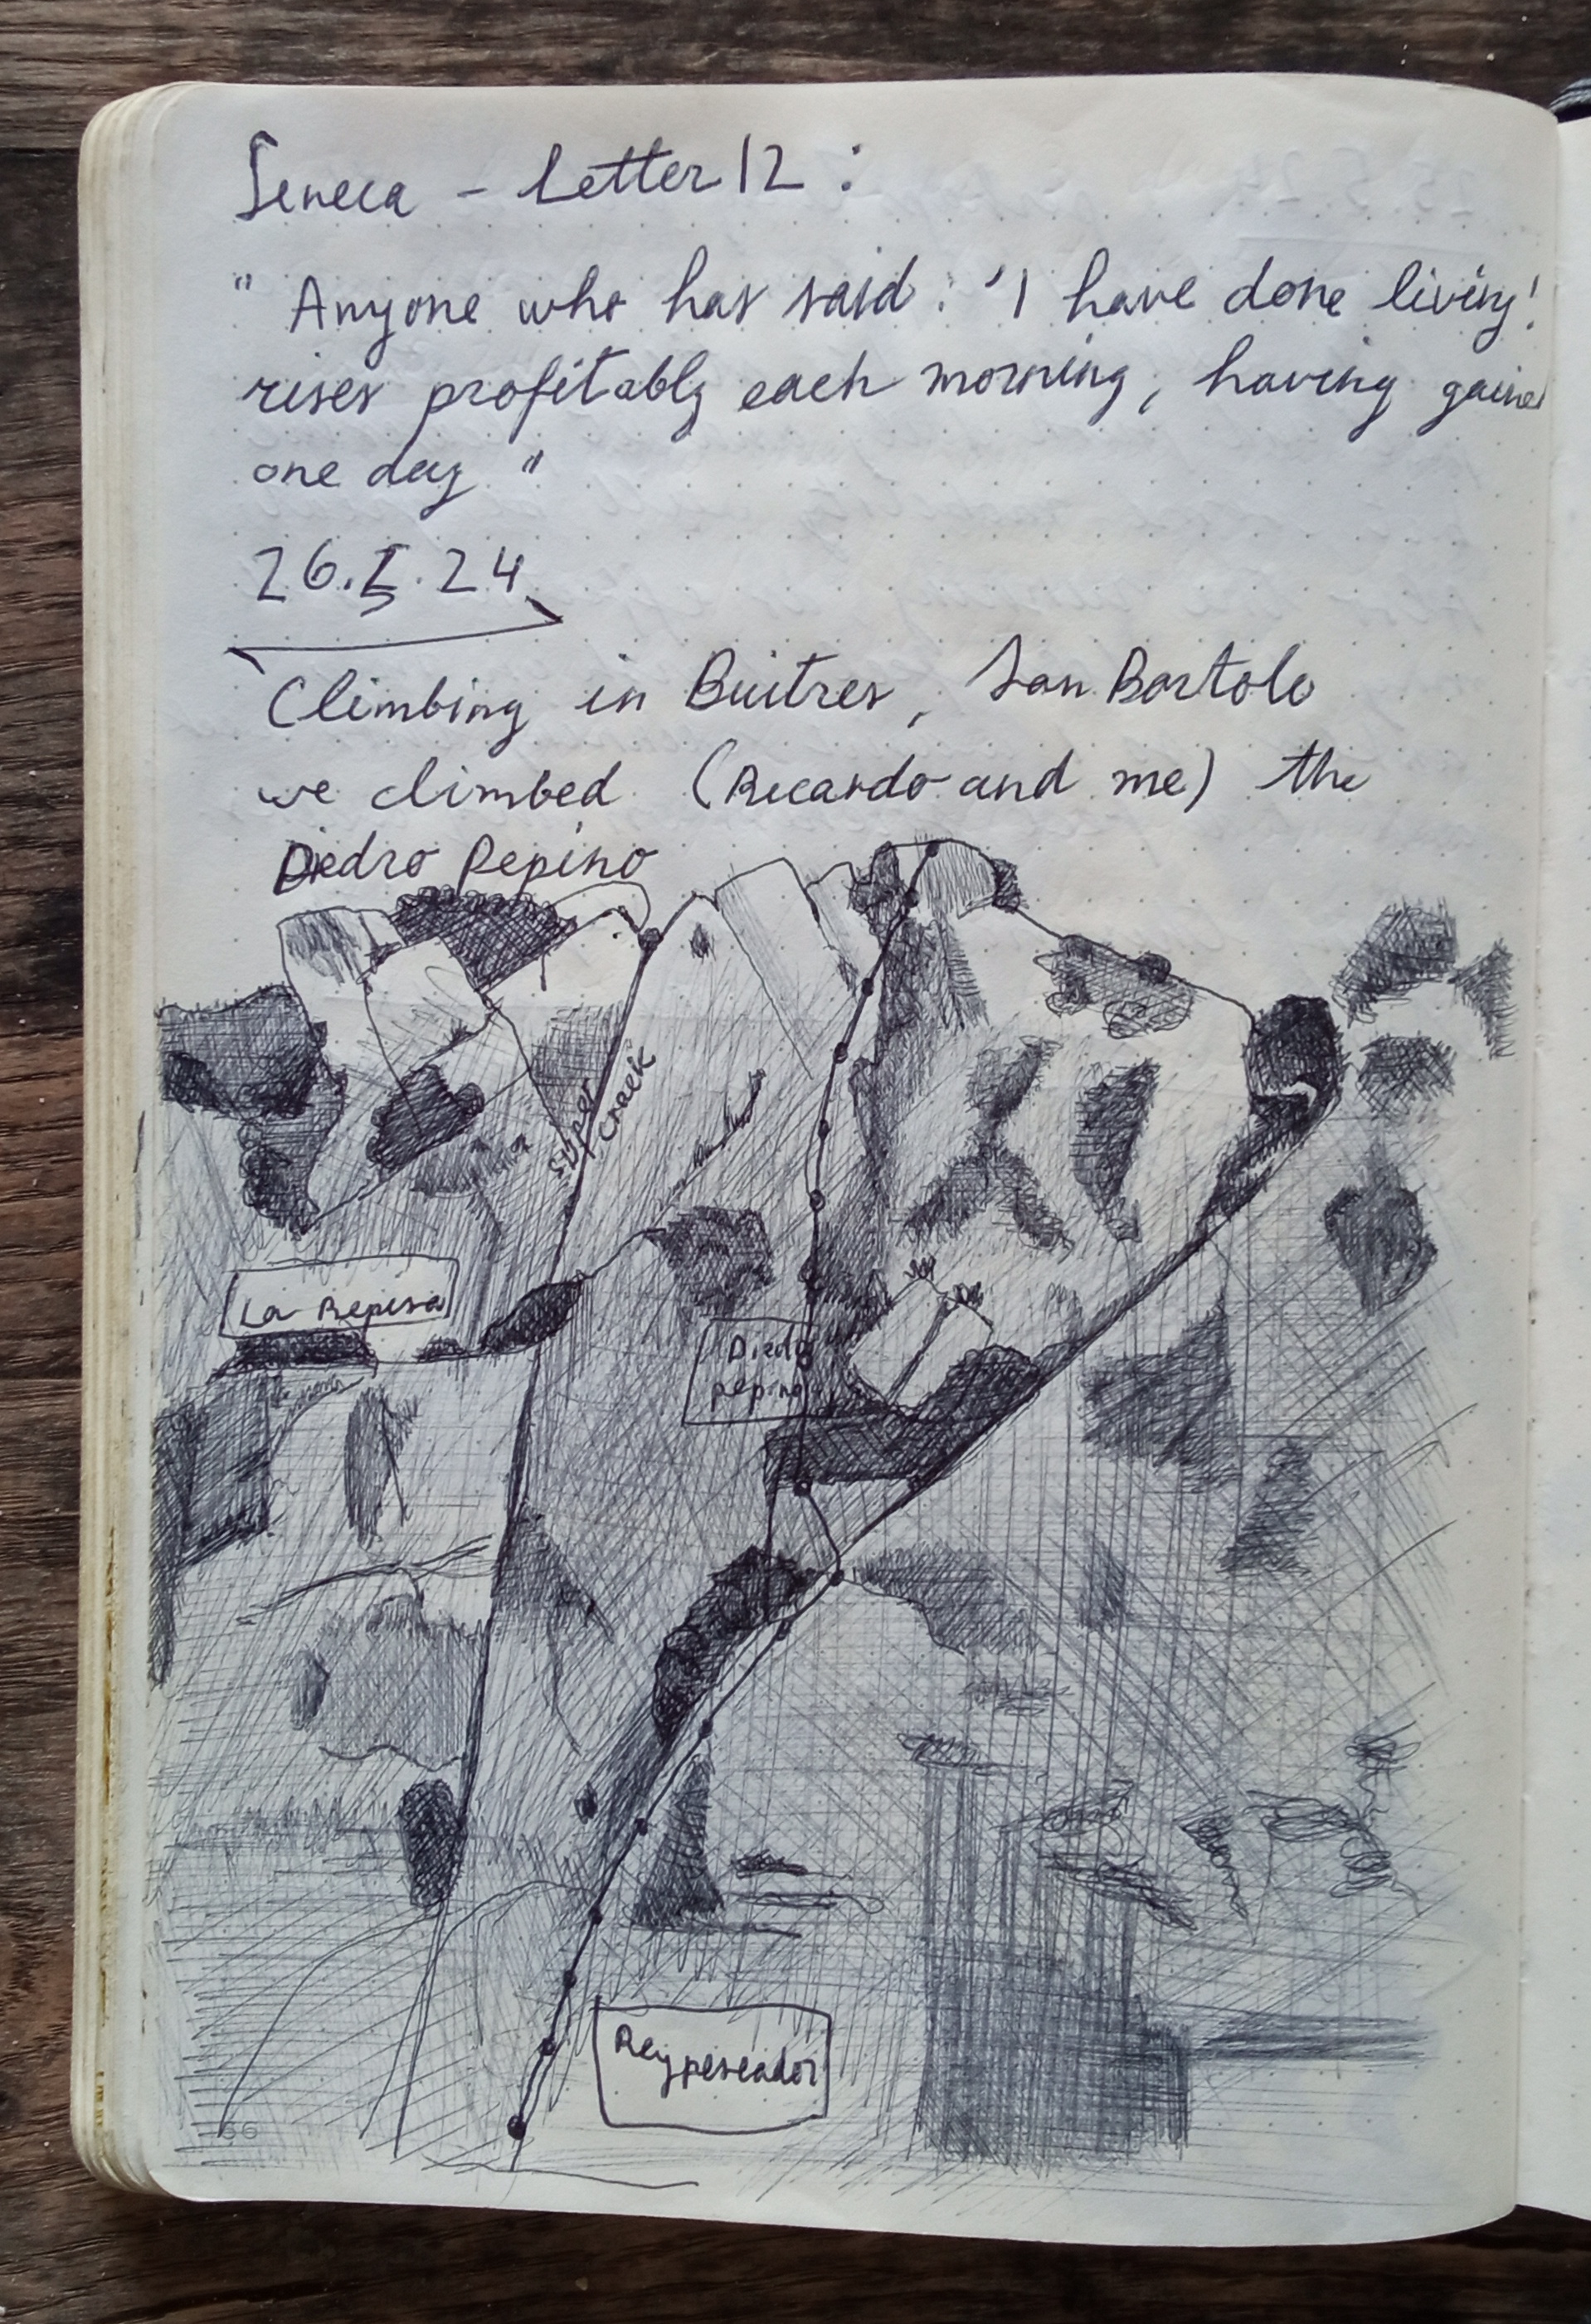 Seneca - Letter 12 :
" Anyone who has said : 'I have done living!
rises profitably each morning, having gained
one day "
26.5.24
Climbing in Buitres, San Bartolo
we climbed (Ricardo and me) the
Diedro Pepino
Super
Creek
La Repisa
Diedro
pepino
Rey pescador
66